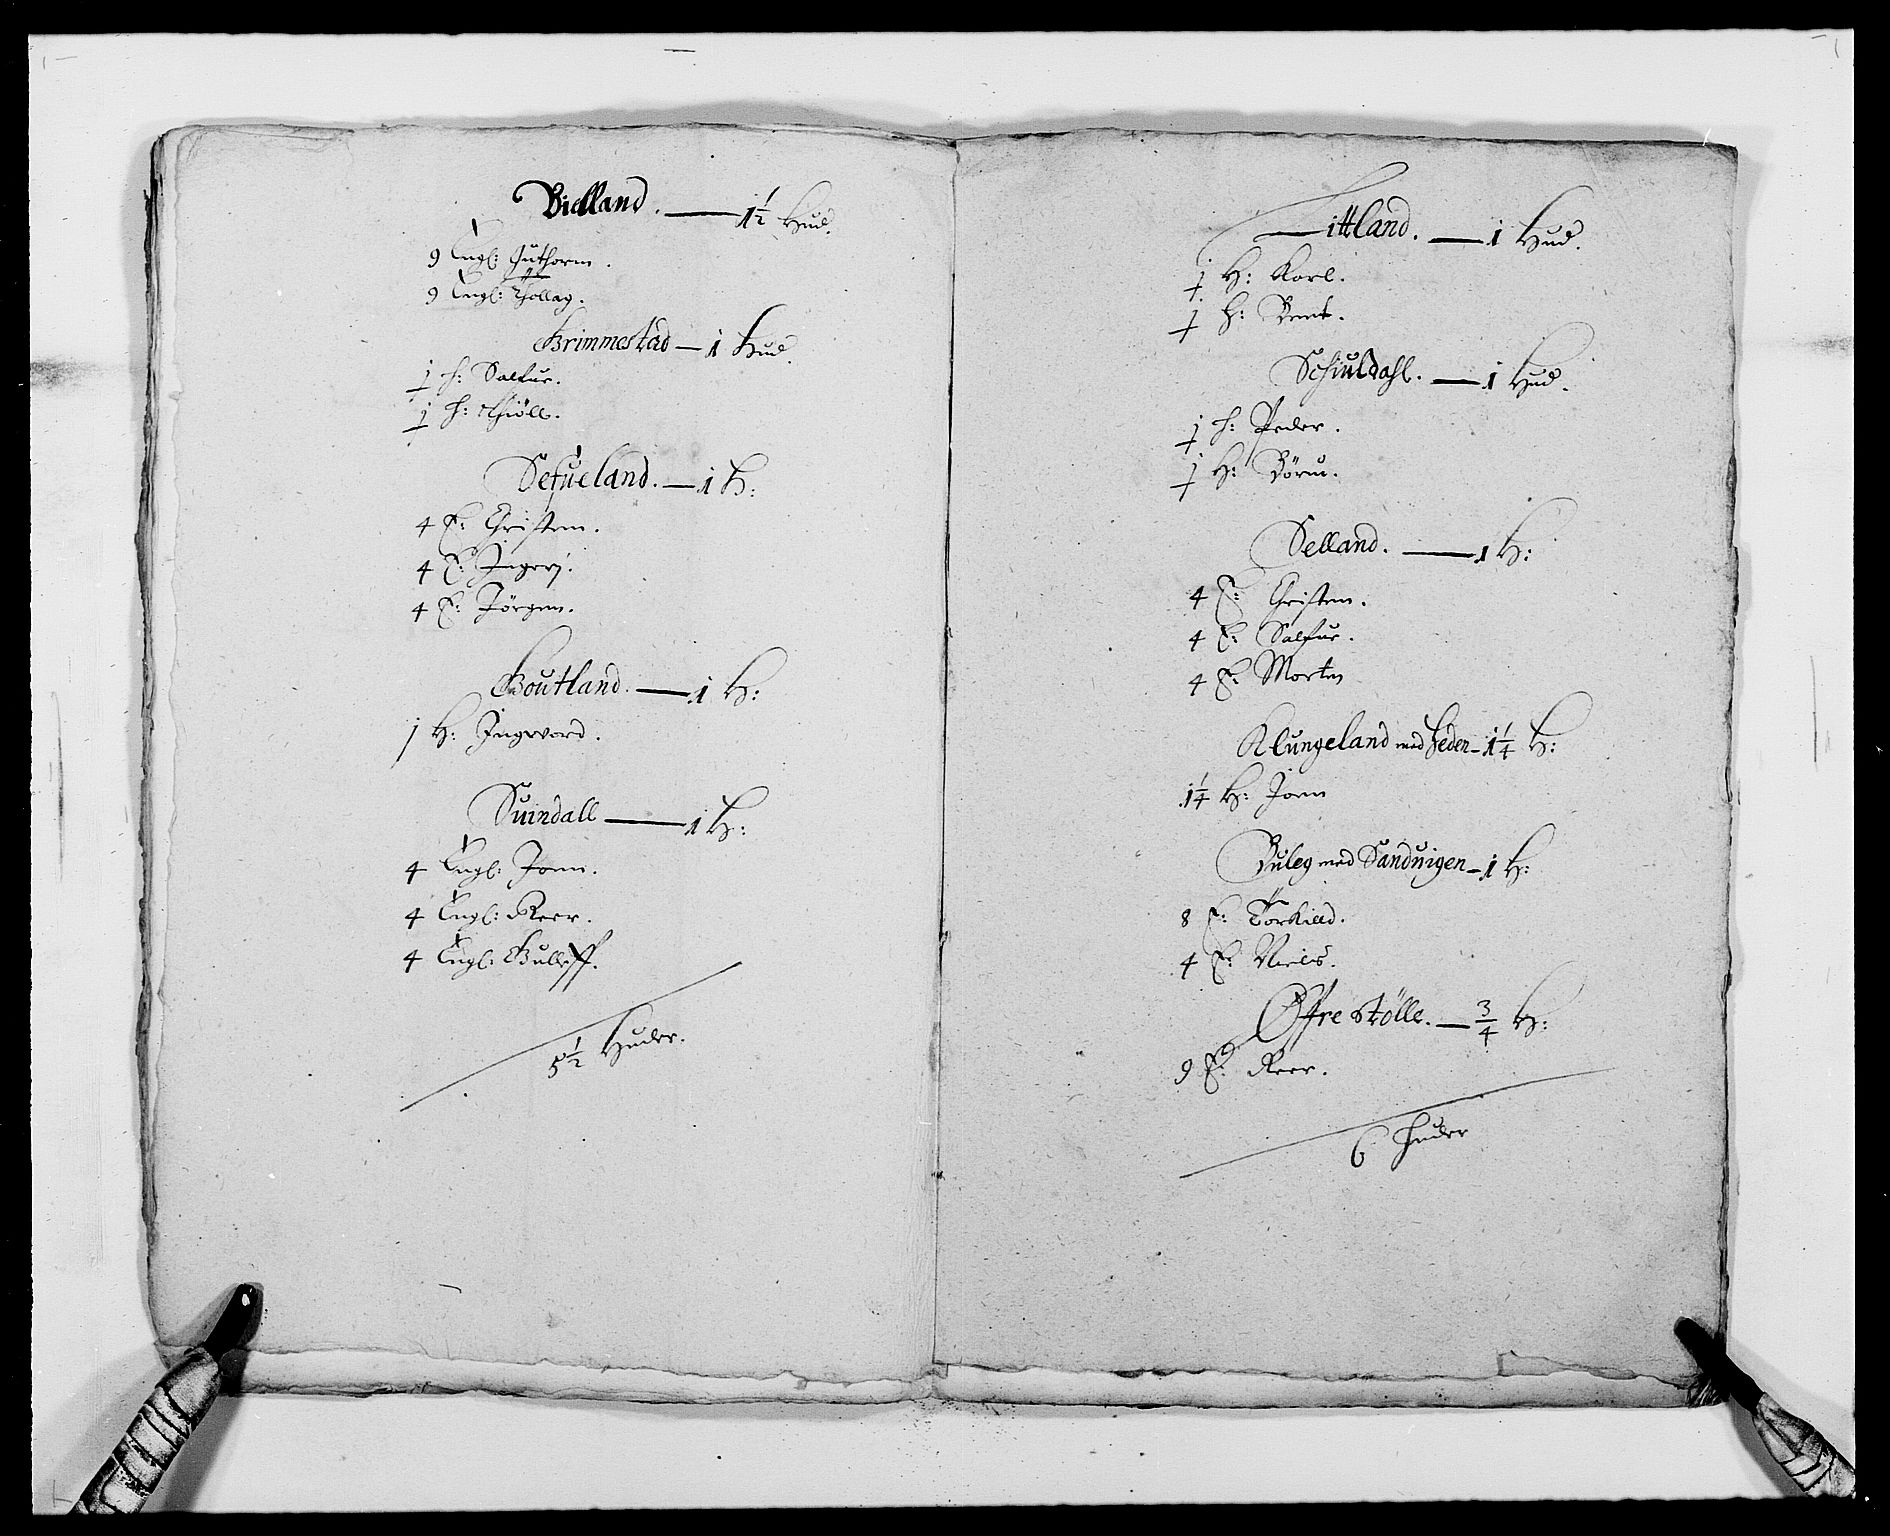 Bielland. — 1 1/2 Hud.
9 Engl: Guthorm.
9 Engl: Tollag.
Grimmestad — 1 Hud.
1/2 H: Salfue.
1/2 H: Thiöll.
Sefueland. — 1 H:
4 E: Christen.
4 E: Jngerj.
4 E: Jörgen.
Goutland. — 1 H:
1 H: Jngvord.
Suindall — 1 H:
4 Engl: Joen.
4 Engl: Reer.
4 Engl: Gulleff.
5 1/2 Huder.
Littland. — 1 Hud.
1/2 H: Korl.
1/2 H: Bent.
Schiuldahl. — 1 Hud.
1/2 H: Peder.
1/2 H: Börru.
Selland. — 1 H:
4 E: Christen.
4 E: Salfue.
4 E: Morten
Klungeland med Heden — 1 1/4 H:
1 1/4 H: Joen
Buleg med Sanduigen — 1 H:
8 E: Torkield.
4 E: Niels.
Øffre Stölle. — 3/4 H:
9 E: Reer.
6 Huder